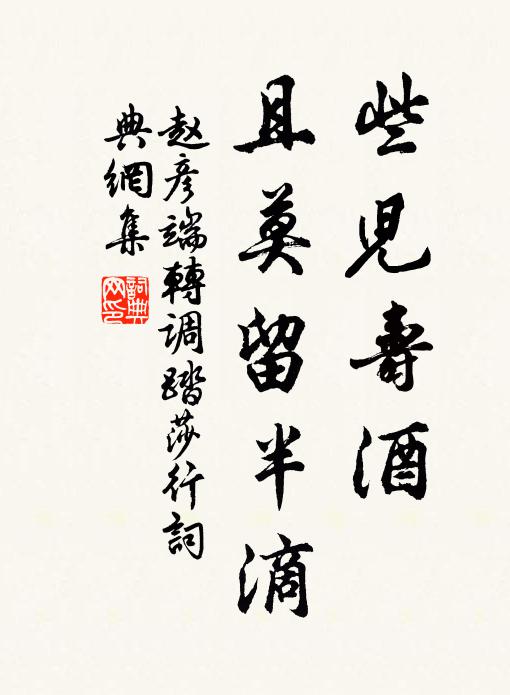 些兒壽酒
且莫留半滴
赵彦端轉调踏莎行詞
典網集
詞典网印